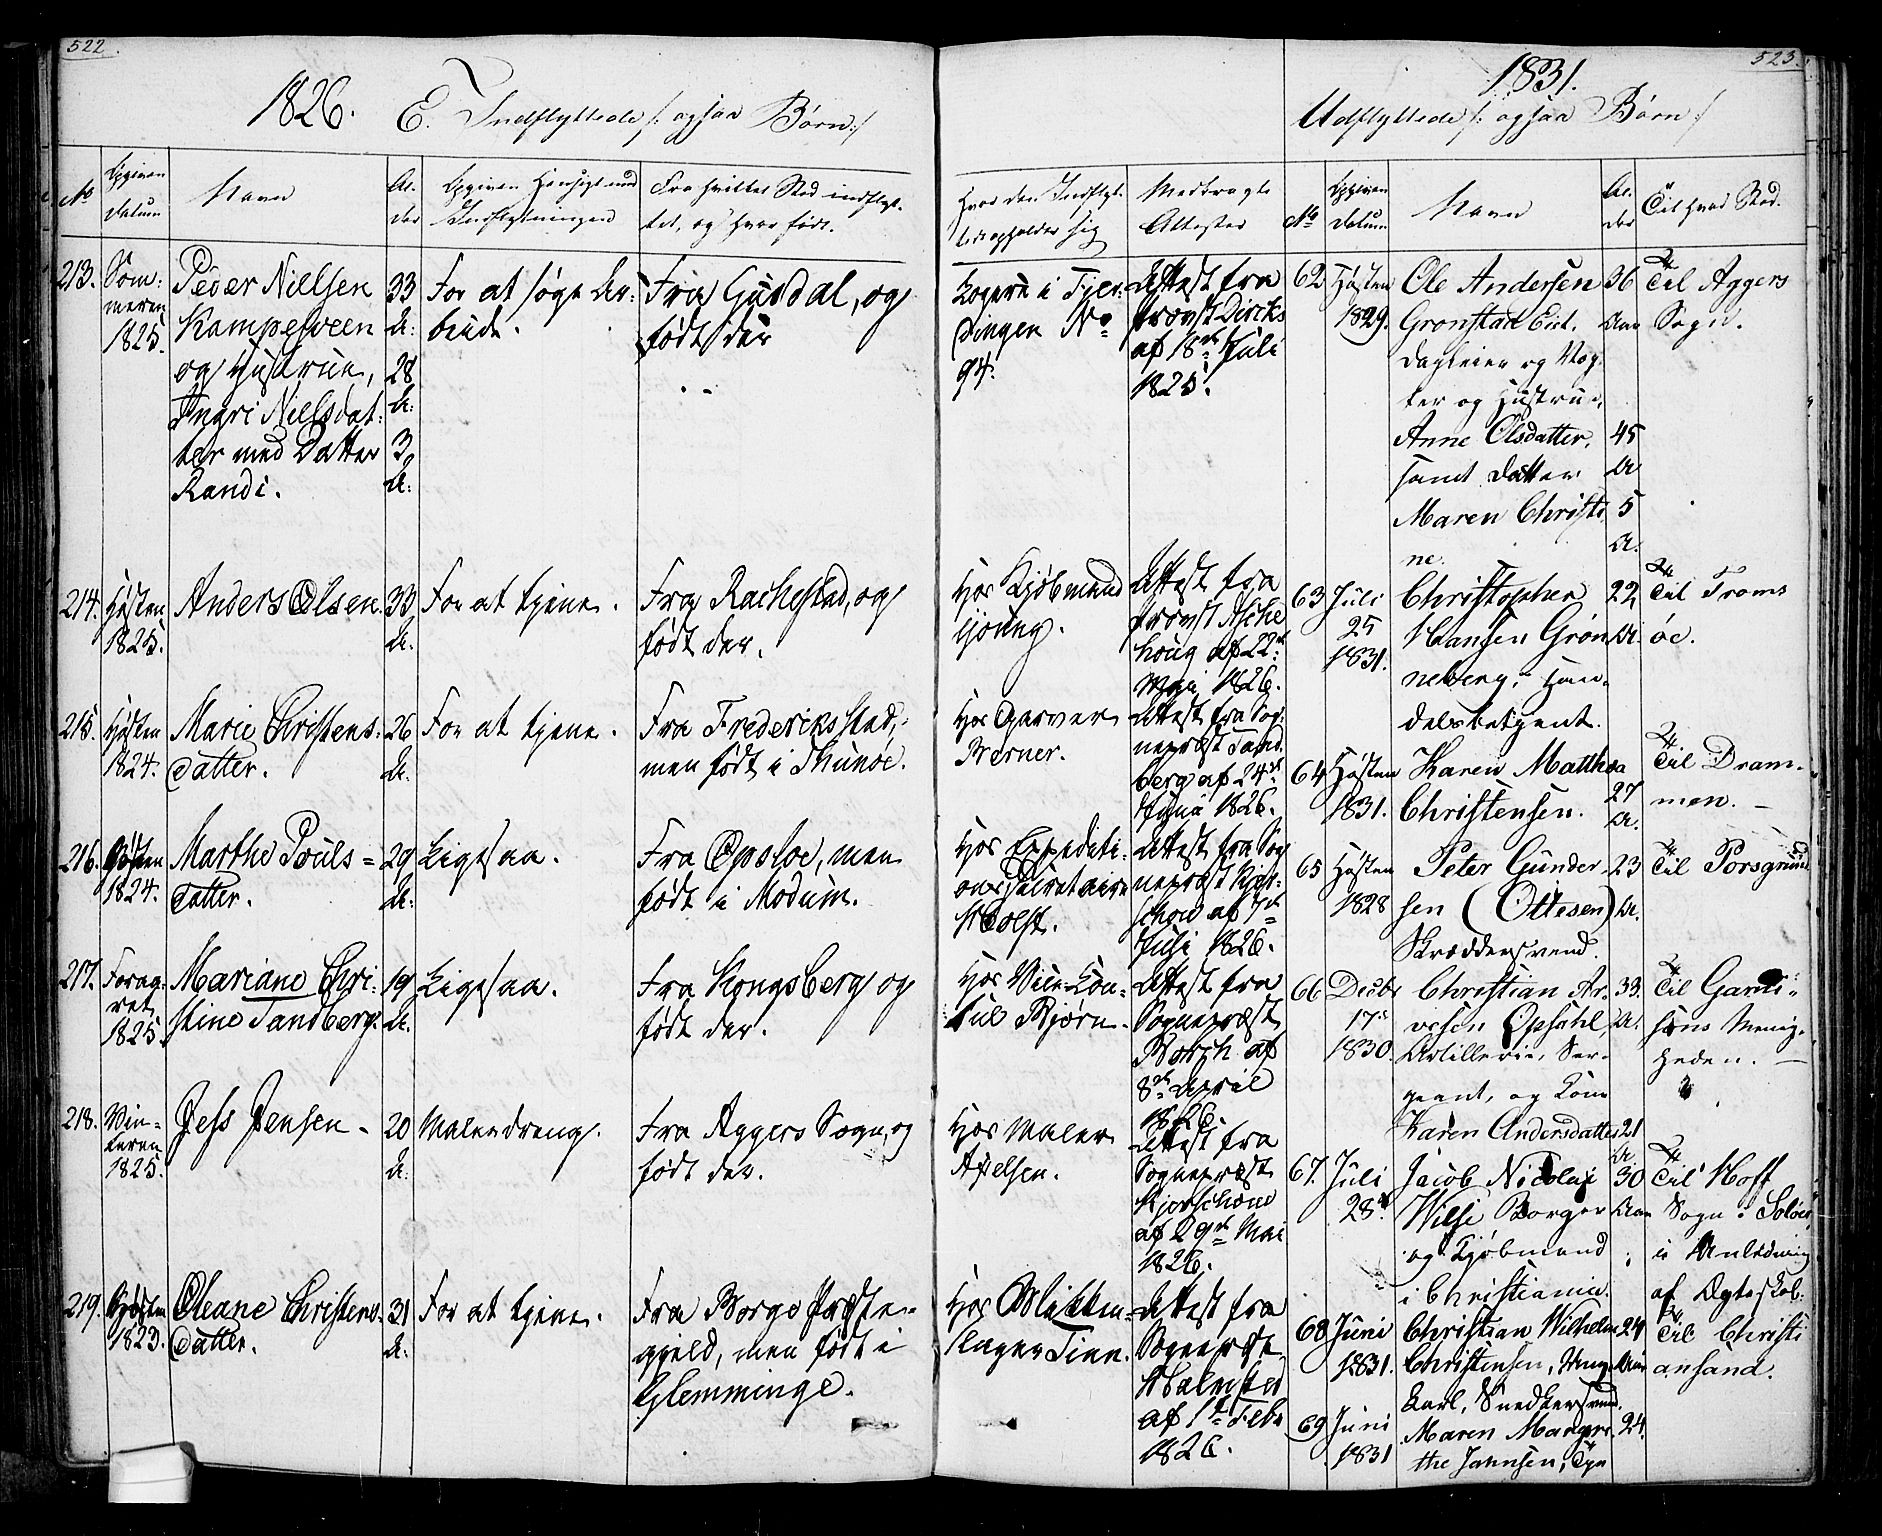 522.
1826. E. Indflyttede /: ogsaa Børn :/
No
Opgiven
Datum
Navn
Al-
der
Opgiven Hensigt med
Indflytningen
Fra hvilket Sted indflyt-
tet, og hvor født.
Hvor den Indflyt-
tede opholder sig
Medbragte
Attester
213.
Som-
meren
1825.
Peder Nielsen
Kampesveen
og Hustrue,
Ingri Nielsdat-
ter med Datter
Randi.
33
A:
28
A:
3
A:
For at søge Ar-
beide.
Fra Gusdal, og
født der
Logere i Fjer-
dingen No
94.
Attest fra
Provst Dircks
af 18de Juli
1825.
214.
Høsten
1825.
Anders Olsen.
33
A.
For at tjene.
Fra Rackestad, og
født der.
Hos Kjøbmand
Attest fra
Provst Asche
houg af 22de
Maj 1826.
215.
Høsten
1824.
Marie Christens-
datter.
26
A.
For at tjene.
Fra Frederiksstad,
men født i Thunøe.
Hos Garver
Berner.
Attest fra Sog-
nepræst Tand
berg af 24de
1826.
216.
Høsten
1824.
Marthe Pouls=
datter.
29
A.
Ligesaa.
Fra Opsloe, men
født i Modum.
Hos Expediti-
ons Secretaire
Holst.
Attest fra Sog
nepræst
af 7de
Juli 1826.
217.
Foraa-
ret
1825.
Mariane Chri-
stine Sandberg.
19
A.
Ligesaa.
Fra Kongsberg og
født der.
Hos Vice-Con-
sul Bjørn.
Attest fra
Sognepræst
Borch af
8de April
1826.
218.
Vin-
teren
1825.
Jess Jensen -
20
A.
Malerdreng.
Fra Aggers Sogn, og
født der.
Hos Maler
Axelsen.
Attest fra
Sognepræst
Kjerschow
af 29de Mai
1826.
219.
Høsten
1823.
Oleane Christens-
datter.
31
A.
For at tjene.
Fra Borge Præste-
gjeld, men født i
Glemminge.
Hos Blikken-
slager Tinn.
Attest fra
Sognepræst
af 1te Febr
1826.
523.
1831.
Udflyttede /: ogsaa Børn :/
No
Opgiven
Datum
Navn
Al-
der
Til hvad Sted.
62
Høsten
1829.
Ole Andersen
Gronstad Eiet.
dagleier og Vog-
ter og Hustrue,
Anne Olsdatter,
samt Datter
Maren Christi
ne.
36
Aar
45
Ar
5
Ar.
Til Aggers
Sogn.
63
Juli
25
1831.
Christopher
Hansen Grøn
neberg, Han-
delsbetjent.
22
Ar.
Til Troms
øe.
64
Høsten
1831.
Karen Mathea
Christensen.
27
Ar.
Til Dram-
men. -
65
Høsten
1828
Peter Gunder-
sen (Ottesen)
Skræddersvend.
23
Ar.
Til Porsgrund
66
Decbr
17de
1830.
Christian Ar-
vesen Opsahl,
Artillerie, Ser-
geant, og Kone
Karen Andersdatter
33.
A.
21
Ar
Til Garni-
sons Menig-
heden. -
67.
Juli
28de
Jacob Nicolai
Wilse Borger
og Kjøbmand
i Christiania.
30
Aar
Til Hoff
Sogn i Soløer
i Anledning
af Ægteskab.
68
Juni
1831.
Christian Wilhelm
Christensen, Ung-
karl, Snedkersvend.
24
Aar
Til Christi
ansand.
69
Juni
1831
Maren Margre-
the Jahnsen,
24.